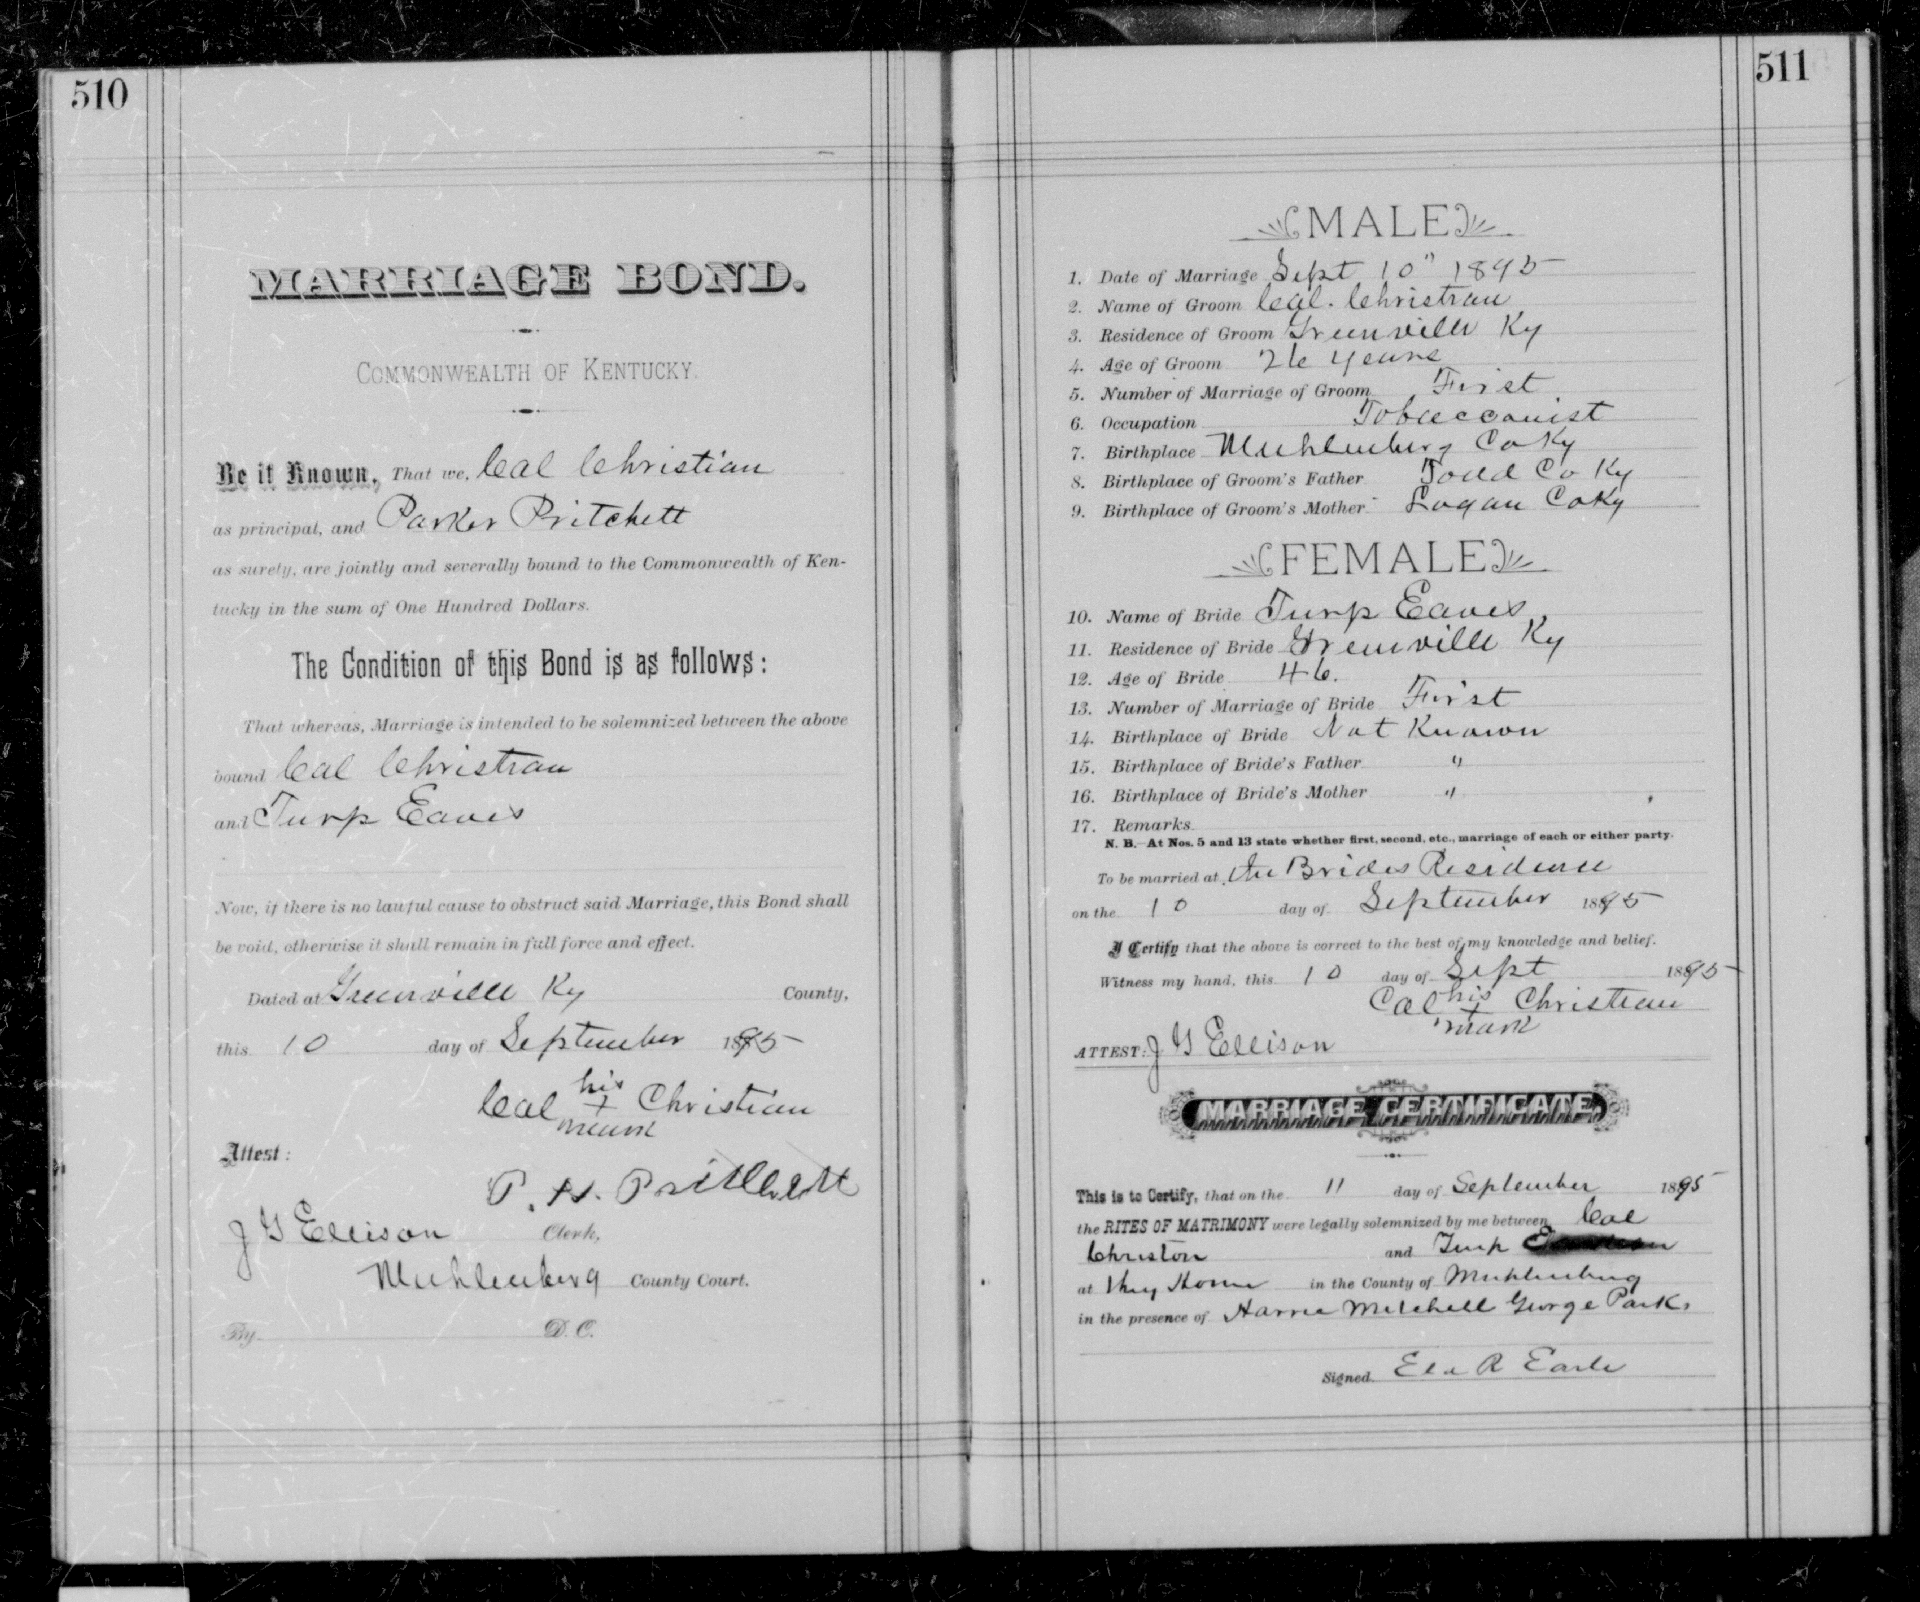 510
MARRIAGE BOND.
COMMONWEALTH OF KENTUCKY.
Be it Known, That we, Cal Christian
as principal, and Parker Pritchett
as surety, are jointly and severally bound to the Commonwealth of Ken-
tucky in the sum of One Hundred Dollars.
The Condition of this Bond is as follows:
That whereas, Marriage is intended to be solemnized between the above
bound Cal Christian
and Turp Eaves
Now, if there is no lawful cause to obstruct said Marriage, this Bond shall
be void, otherwise it shall remain in full force and effect.
Dated at Greenville Ky County,
this 10 day of September 1895
Cal his x mark Christian
Attest:
P. H. Pritchett
J G Ellison Clerk,
Muhlenberg County Court.
By D. C.
511
MALE
1. Date of Marriage Sept 10" 1895
2. Name of Groom Cal. Christian
3. Residence of Groom Greenville Ky
4. Age of Groom 26 years
5. Number of Marriage of Groom First
6. Occupation Tobacconist
7. Birthplace Muhlenberg Co Ky
8. Birthplace of Groom's Father Todd Co Ky
9. Birthplace of Groom's Mother Logan Co Ky
FEMALE
10. Name of Bride Turp Eaves
11. Residence of Bride Greenville Ky
12. Age of Bride 46.
13. Number of Marriage of Bride First
14. Birthplace of Bride Not Known
15. Birthplace of Bride's Father "
16. Birthplace of Bride's Mother "
17. Remarks
N. B.—At Nos. 5 and 13 state whether first, second, etc., marriage of each or either party.
To be married at the Brides Residence
on the 10 day of September 1895
I Certify that the above is correct to the best of my knowledge and belief.
Witness my hand, this 10 day of Sept 1895
Cal his x mark Christian
ATTEST: J G Ellison
MARRIAGE CERTIFICATE
This is to Certify, that on the 11 day of September 1895
the RITES OF MATRIMONY were legally solemnized by me between Cal
Christon and Turp
at Home in the County of Muhlenburg
in the presence of Mitchell George Parks
Signed R Earle